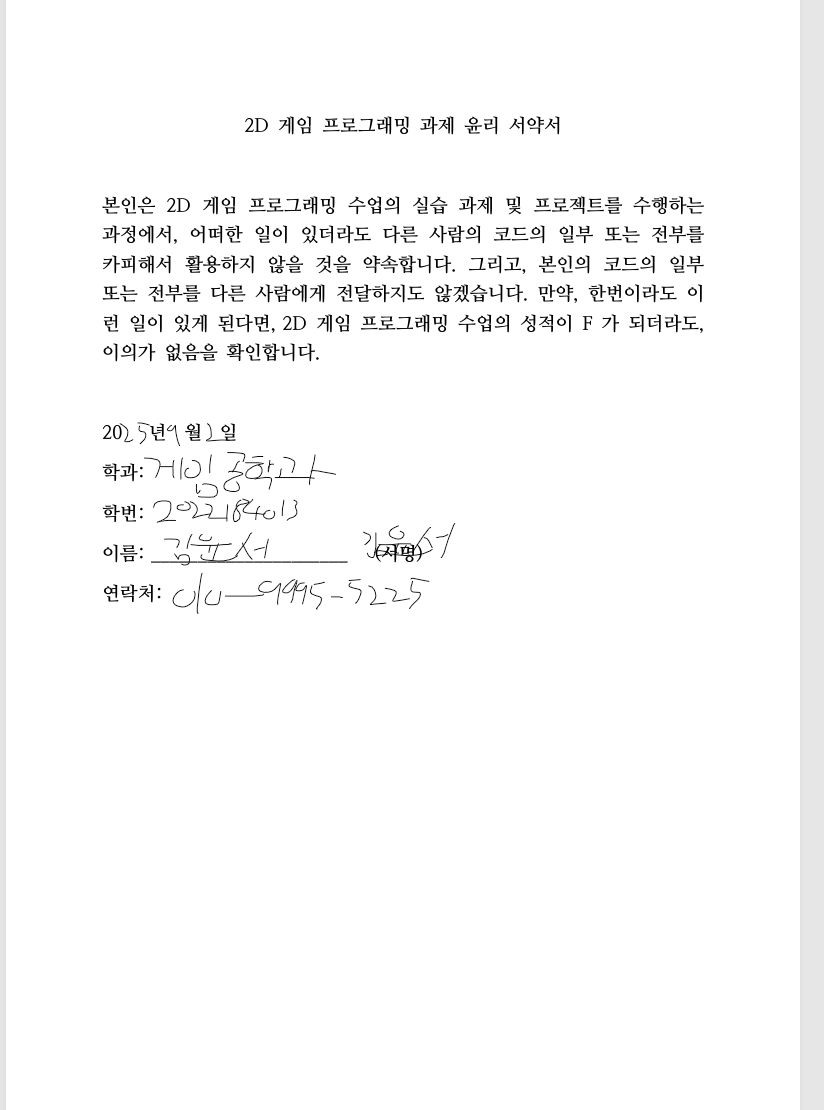 2D 게임 프로그래밍 과제 윤리 서약서
본인은 2D 게임 프로그래밍 수업의 실습 과제 및 프로젝트를 수행하는
과정에서, 어떠한 일이 있더라도 다른 사람의 코드의 일부 또는 전부를
카피해서 활용하지 않을 것을 약속합니다. 그리고, 본인의 코드의 일부
또는 전부를 다른 사람에게 전달하지도 않겠습니다. 만약, 한번이라도 이
런 일이 있게 된다면, 2D 게임 프로그래밍 수업의 성적이 F 가 되더라도,
이의가 없음을 확인합니다.
2025년 9월 2일
학과: 게임공학과
학번: 2022184013
이름: 김윤서 (서명) 김윤서
연락처: 010-9995-5225